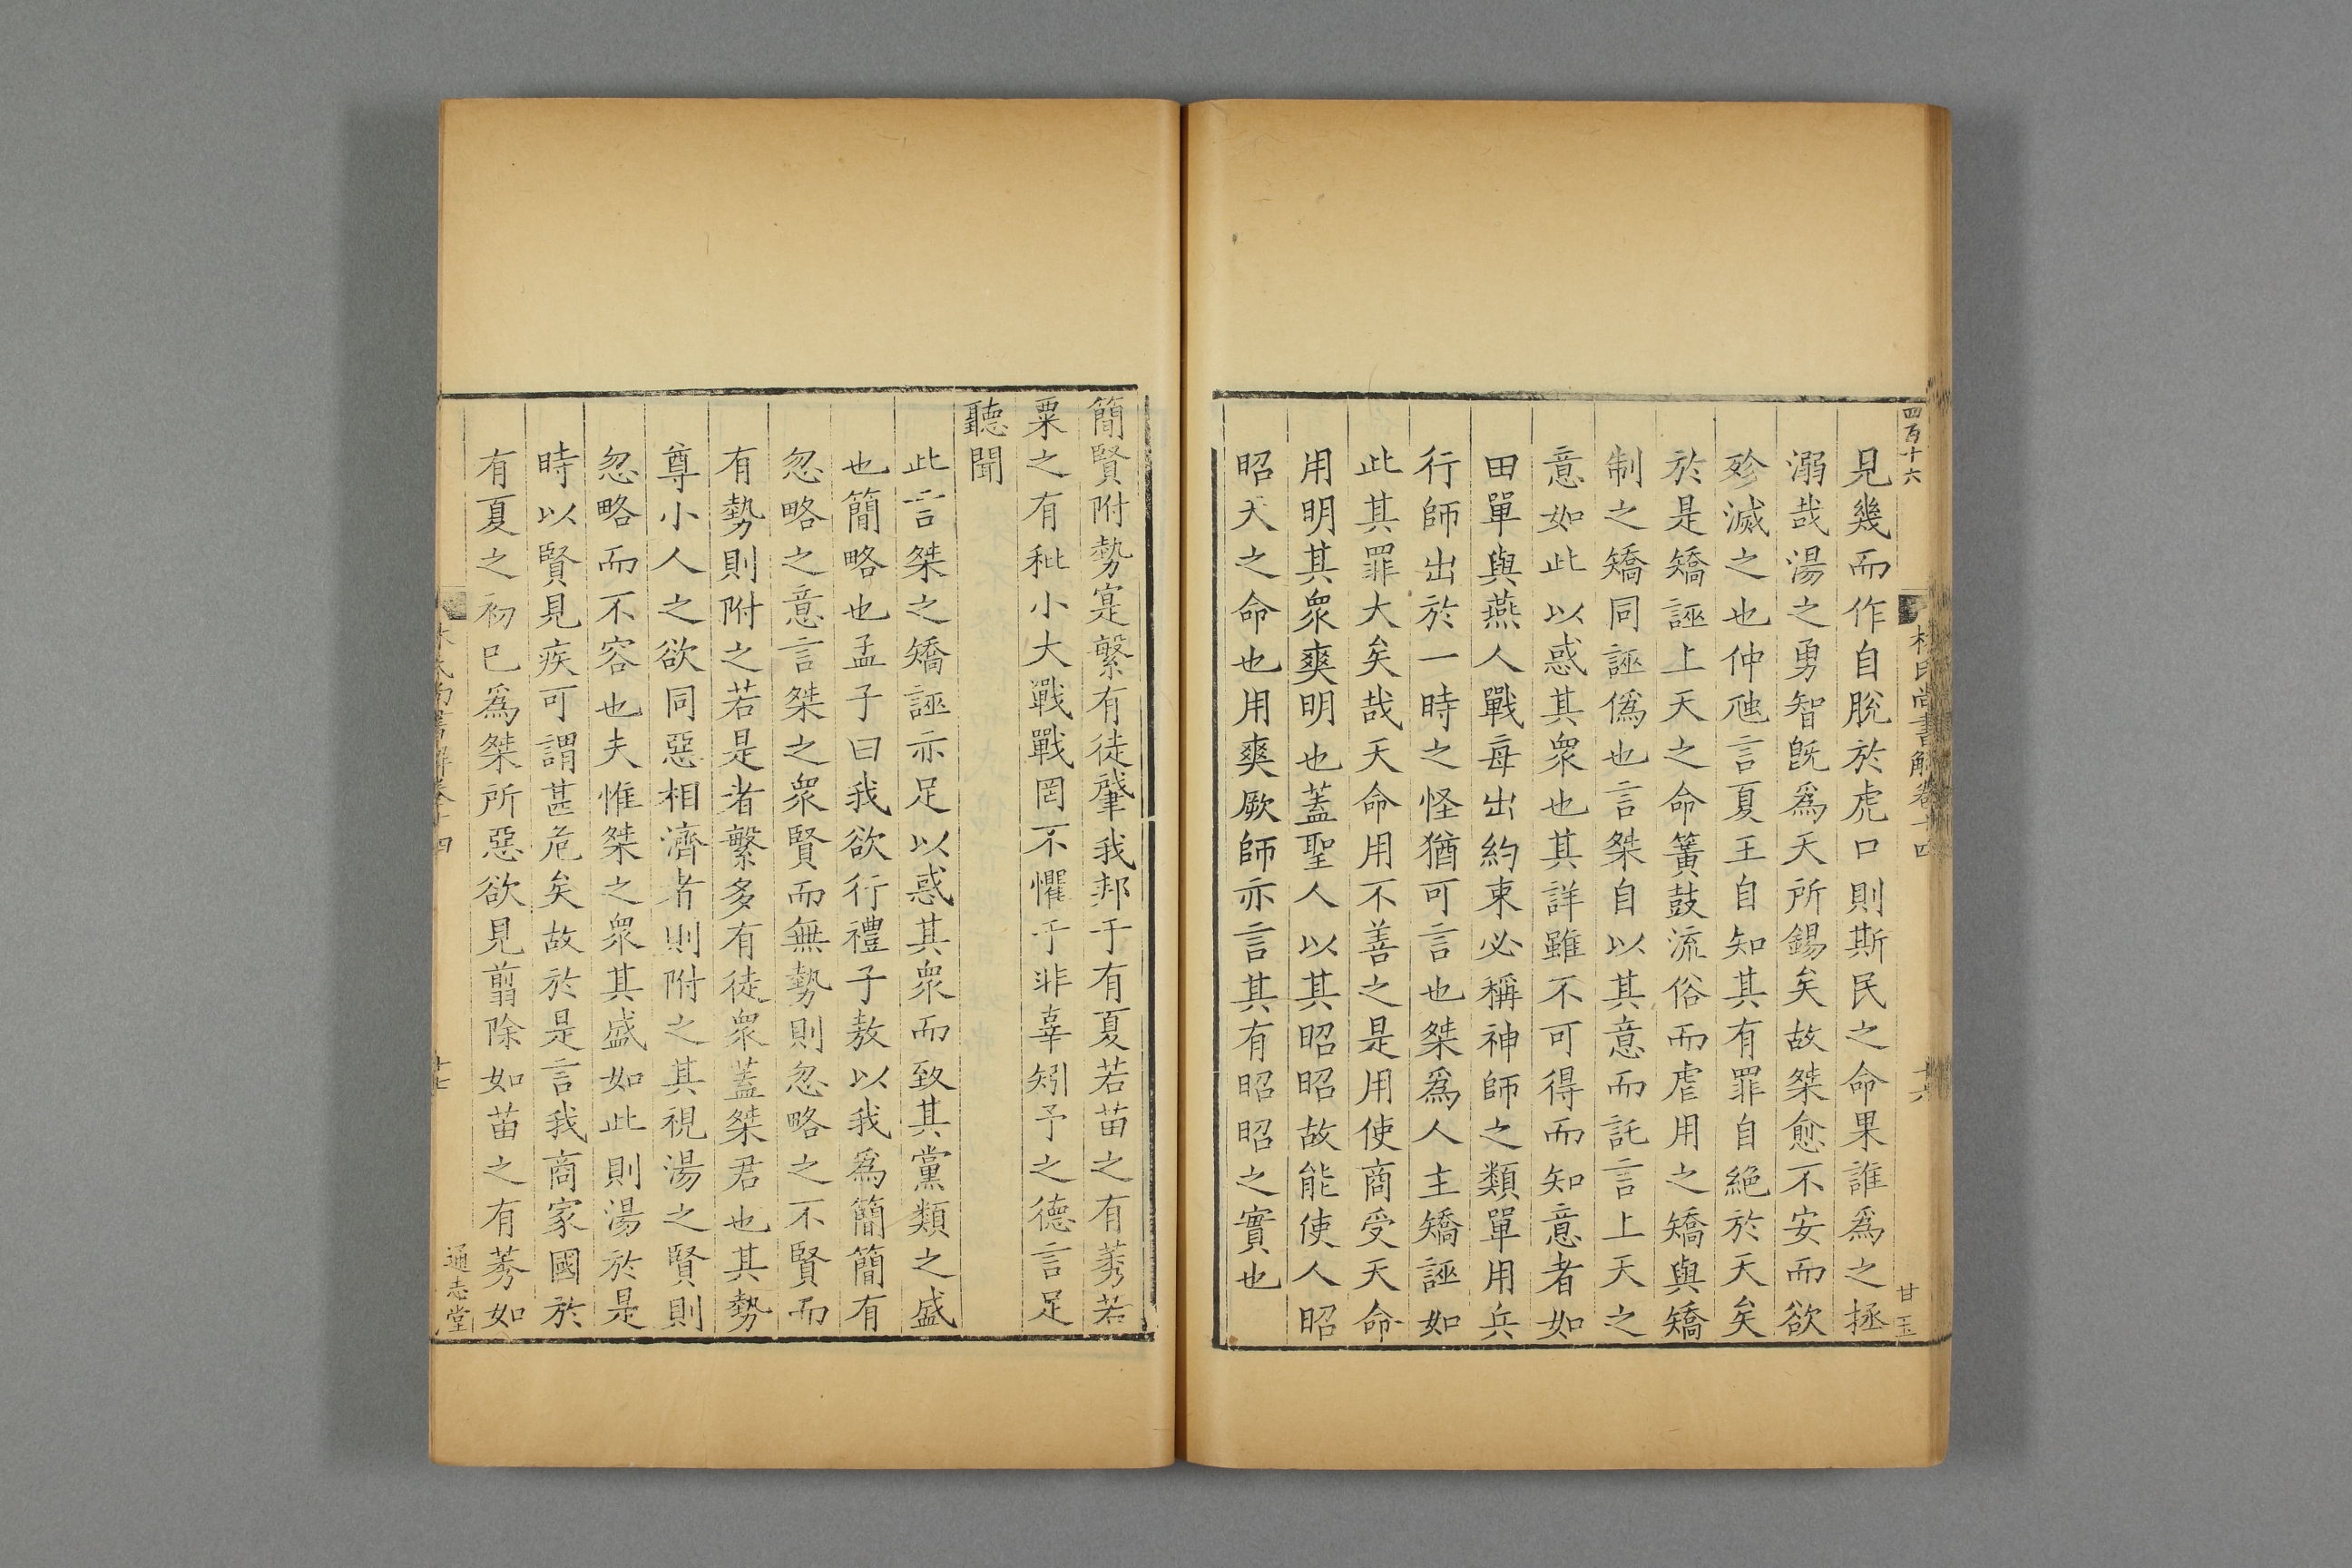 四百十六
林氏尚書解卷十四
十六
甘玉
見幾而作自脫於虎口則斯民之命果誰爲之拯
溺哉湯之勇智旣爲天所錫矣故桀愈不安而欲
殄滅之也仲虺言夏王自知其有罪自絕於天矣
於是矯誣上天之命簧鼓流俗而虐用之矯與矯
制之矯同誣僞也言桀自以其意而託言上天之
意如此以惑其衆也其詳雖不可得而知意者如
田單與燕人戰每出約束必稱神師之類單用兵
行師出於一時之怪猶可言也桀爲人主矯誣如
此其罪大矣哉天命用不善之是用使商受天命
用明其衆爽明也蓋聖人以其昭昭故能使人昭
昭天之命也用爽厥師亦言其有昭昭之實也
簡賢附勢寔繁有徒肇我邦于有夏若苗之有莠若
粟之有秕小大戰戰罔不懼于非辜矧予之德言足
聽聞
此言桀之矯誣亦足以惑其衆而致其黨類之盛
也簡略也孟子曰我欲行禮子敖以我爲簡簡有
忽略之意言桀之衆賢而無勢則忽略之不賢而
有勢則附之若是者繁多有徒衆蓋桀君也其勢
尊小人之欲同惡相濟者則附之其視湯之賢則
忽略而不容也夫惟桀之衆其盛如此則湯於是
時以賢見疾可謂甚危矣故於是言我商家國於
有夏之初已爲桀所惡欲見翦除如苗之有莠如
通志堂